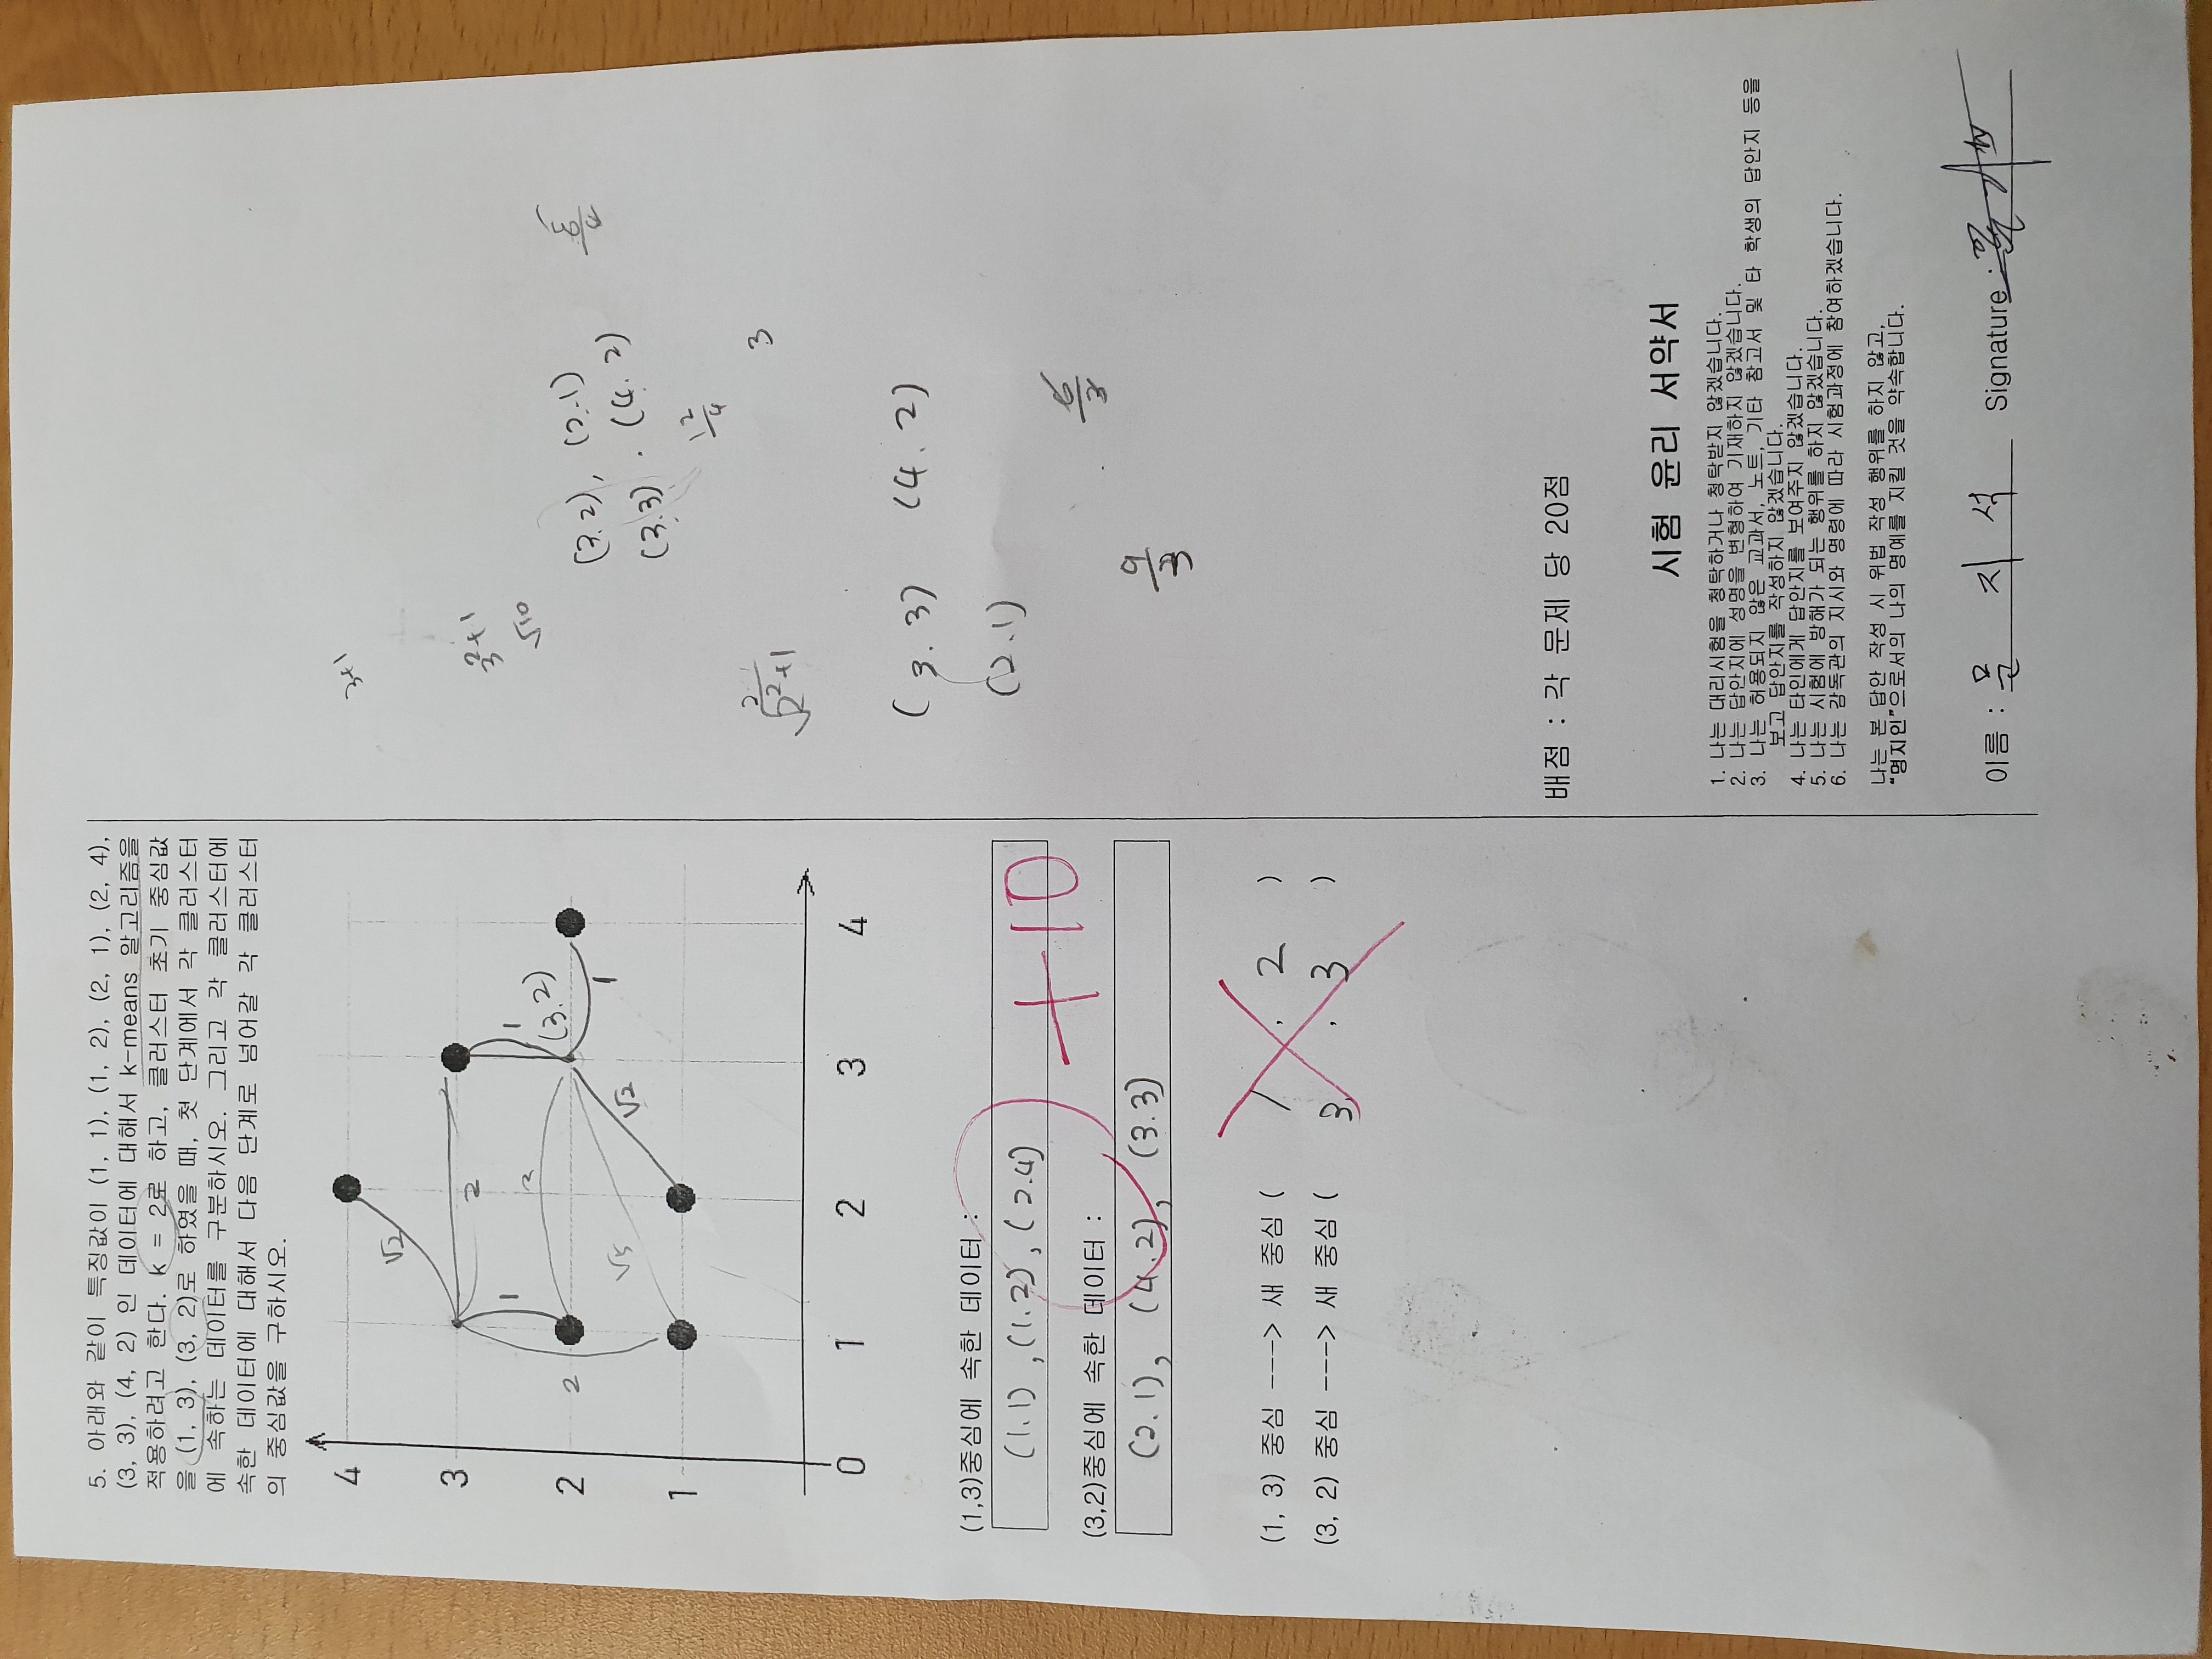 5. 아래와 같이 특징값이 (1, 1), (1, 2), (2, 1), (2, 4),
(3, 3), (4, 2) 인 데이터에 대해서 k-means 알고리즘을
적용하려고 한다. k = 2로 하고, 클러스터 초기 중심값
을 (1, 3), (3, 2)로 하였을 때, 첫 단계에서 각 클러스터
에 속하는 데이터를 구분하시오. 그리고 각 클러스터에
속한 데이터에 대해서 다음 단계로 넘어갈 각 클러스터
의 중심값을 구하시오.
4
√2
3
2
1
1
2
(3.2)
2
2
1
√5
√2
1
0 1 2 3 4
(1,3)중심에 속한 데이터 :
(1.1) , (1.2) , (2.4)
+10
(3,2)중심에 속한 데이터 :
(2.1), (4.2), (3.3)
(1, 3) 중심 ---> 새 중심 ( 1 , 2 )
(3, 2) 중심 ---> 새 중심 ( 3 , 3 )
3+1
√10
(3.2), (2.1)
(3.3) . (4.2)
12/4
3
√2²+1
(3.3) (4.2)
(2.1)
6/3
9/3
배점 : 각 문제 당 20점
시험 윤리 서약서
1. 나는 대리시험을 청탁하거나 청탁받지 않겠습니다.
2. 나는 답안지에 성명을 변형하여 기재하지 않겠습니다.
3. 나는 허용되지 않은 교과서, 노트, 기타 참고서 및 타 학생의 답안지 등을
보고 답안지를 작성하지 않겠습니다.
4. 나는 타인에게 답안지를 보여주지 않겠습니다.
5. 나는 시험에 방해가 되는 행위를 하지 않겠습니다.
6. 나는 감독관의 지시와 명령에 따라 시험과정에 참여하겠습니다.
나는 본 답안 작성 시 위법 작성 행위를 하지 않고,
“명지인”으로서의 나의 명예를 지킬 것을 약속합니다.
이름 : 문 지 석 Signature :